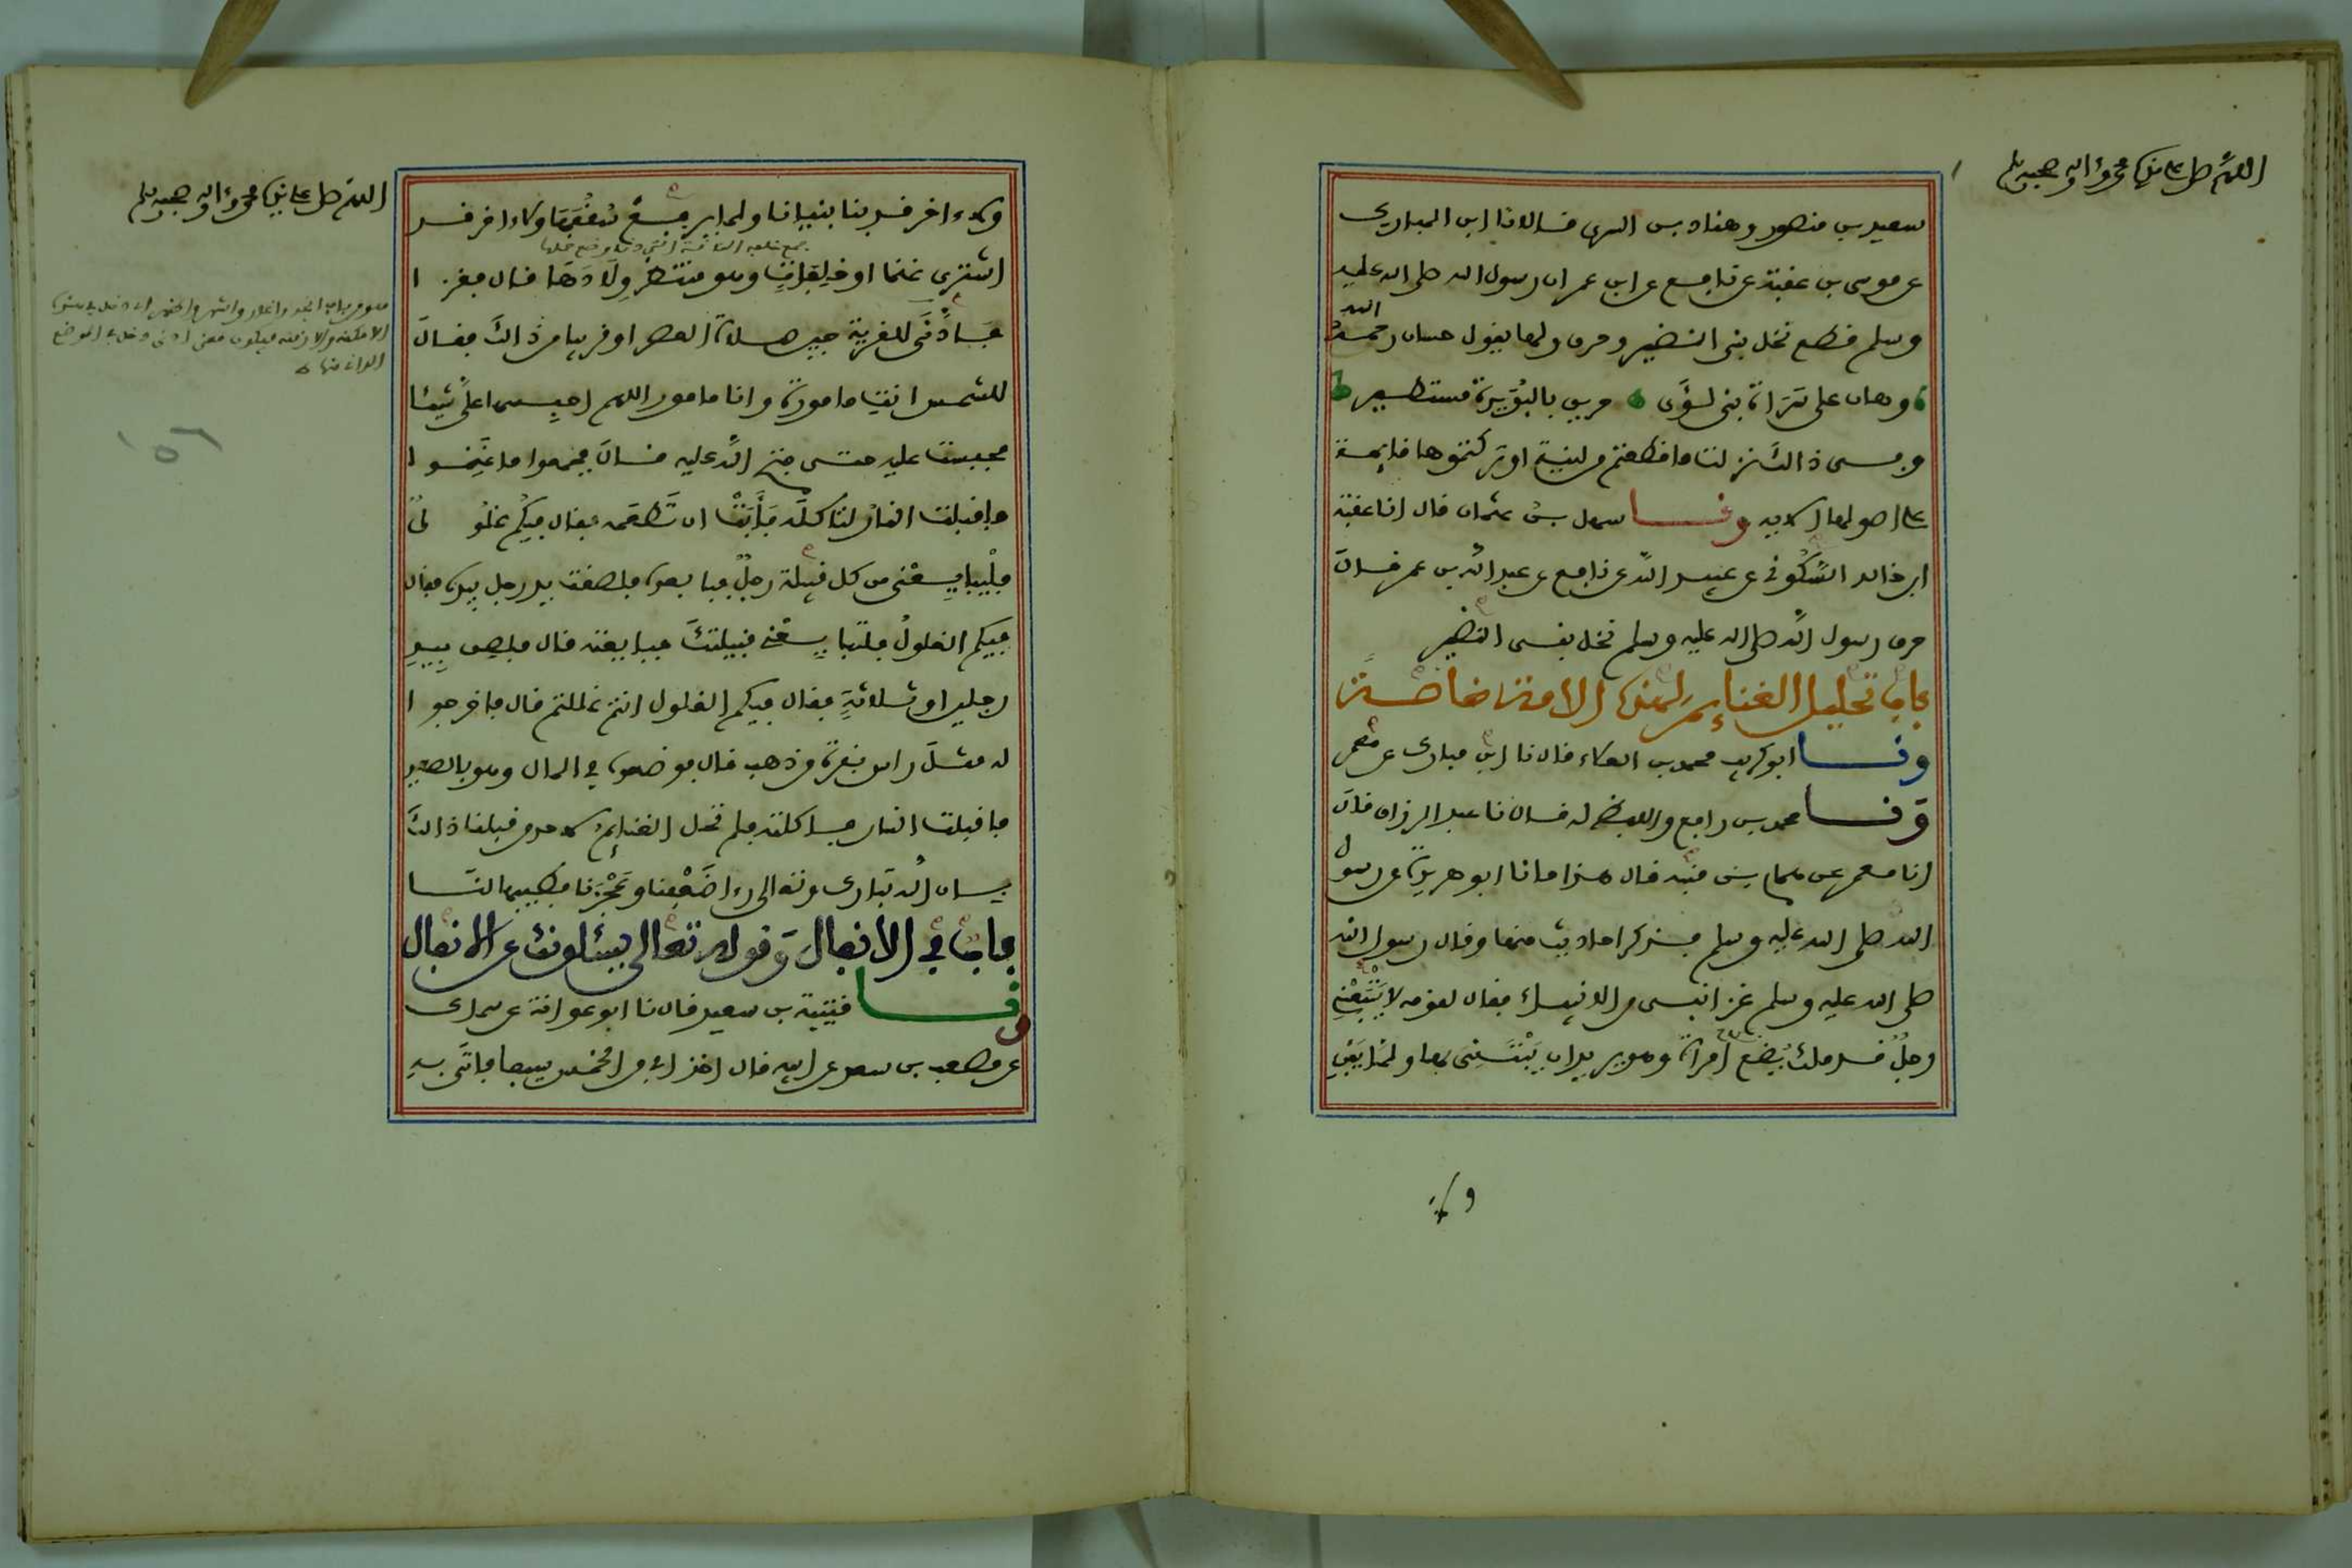 اللهم صل على نبيك محمد واله وصحبه وسلم
سعيد بن منصور وهناد بن السري قالا نا ابن المبارك
عن موسى بن عقبة عن نافع عن ابن عمر ان رسول الله صلى الله عليه
وسلم قطع نخل بني النضير وحرق ولها يقول حسان رحمه الله
وهان على سراة بني لؤي حريق بالبويرة مستطير
وفي ذالك نزلت ما قطعتم من لينة او تركتموها قائمة
على اصولها الاية ونا سهل بن عثمان قال انا عقبة
ابن خالد السكوني عن عبيد الله عن نافع عن عبد الله بن عمر قال
حرق رسول الله صلى الله عليه وسلم نخل بني النضير
باب تحليل الغنائم لهذه الامة خاصة
ونا ابو كريب محمد بن العلاء قال نا ابن مبارك عن معمر
ونا محمد بن رافع واللفظ له قال نا عبد الرزاق قال
انا معمر عن همام بن منبه قال هذا ما نا ابو هريرة عن رسول
الله صلى الله عليه وسلم فذكر احاديث منها وقال رسول الله
صلى الله عليه وسلم غزا نبي من الانبياء فقال لقومه لا يتبعني
رجل قد ملك بضع امراة وهو يريد ان يبتني بها ولما يبن
ولا
اللهم صل على نبيك محمد واله وصحبه وسلم
ولاء اخر قد بنا بنيانا ولما يرفع سقفها ولاء اخر قد
اشترى غنما او خلفات وهو منتظر ولادها قال فغزا
فادنى للقرية حين صلاة العصر او قريبا من ذالك فقال
للشمس انت مامورة وانا مامور اللهم احبسها علي شيئا
فحبست عليه حتى فتح الله عليه قال فجمعوا ما غنموا
فاقبلت النار لتاكله فابت ان تطعمه فقال فيكم غلول
فليبايعني من كل قبيلة رجل فبايعوه فلصقت يد رجل بيده فقال
فيكم الغلول فلتبايعني قبيلتك فبايعته قال فلصق بيد
رجلين او ثلاثة فقال فيكم الغلول انتم غللتم قال فاخرجوا
له مثل راس بقرة من ذهب قال فوضعوه في المال وهو بالصعيد
فاقبلت النار فاكلته فلم تحل الغنائم لاحد من قبلنا ذالك
بان الله تبارك وتعالى راى ضعفنا وعجزنا فطيبها لنا
باب في الانفال وقوله تعالى يسئلونك عن الانفال
ونا قتيبة بن سعيد قال نا ابو عوانة عن سماك
عن مصعب بن سعد عن ابيه قال اخذ ابي من الخمس سيفا فاتى به